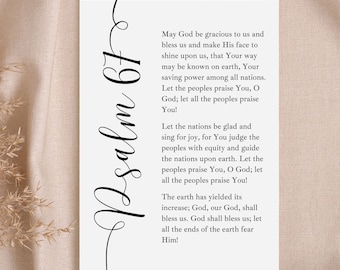 Psalm 67
May God be gracious to us and
bless us and make His face to
shine upon us, that Your way
may be known on earth, Your
saving power among all nations.
Let the peoples praise You, O
God; let all the peoples praise
You!
Let the nations be glad and
sing for joy, for You judge the
peoples with equity and guide
the nations upon earth. Let the
peoples praise You, O God; let
all the peoples praise You!
The earth has yielded its
increase; God, our God, shall
bless us. God shall bless us; let
all the ends of the earth fear
Him!